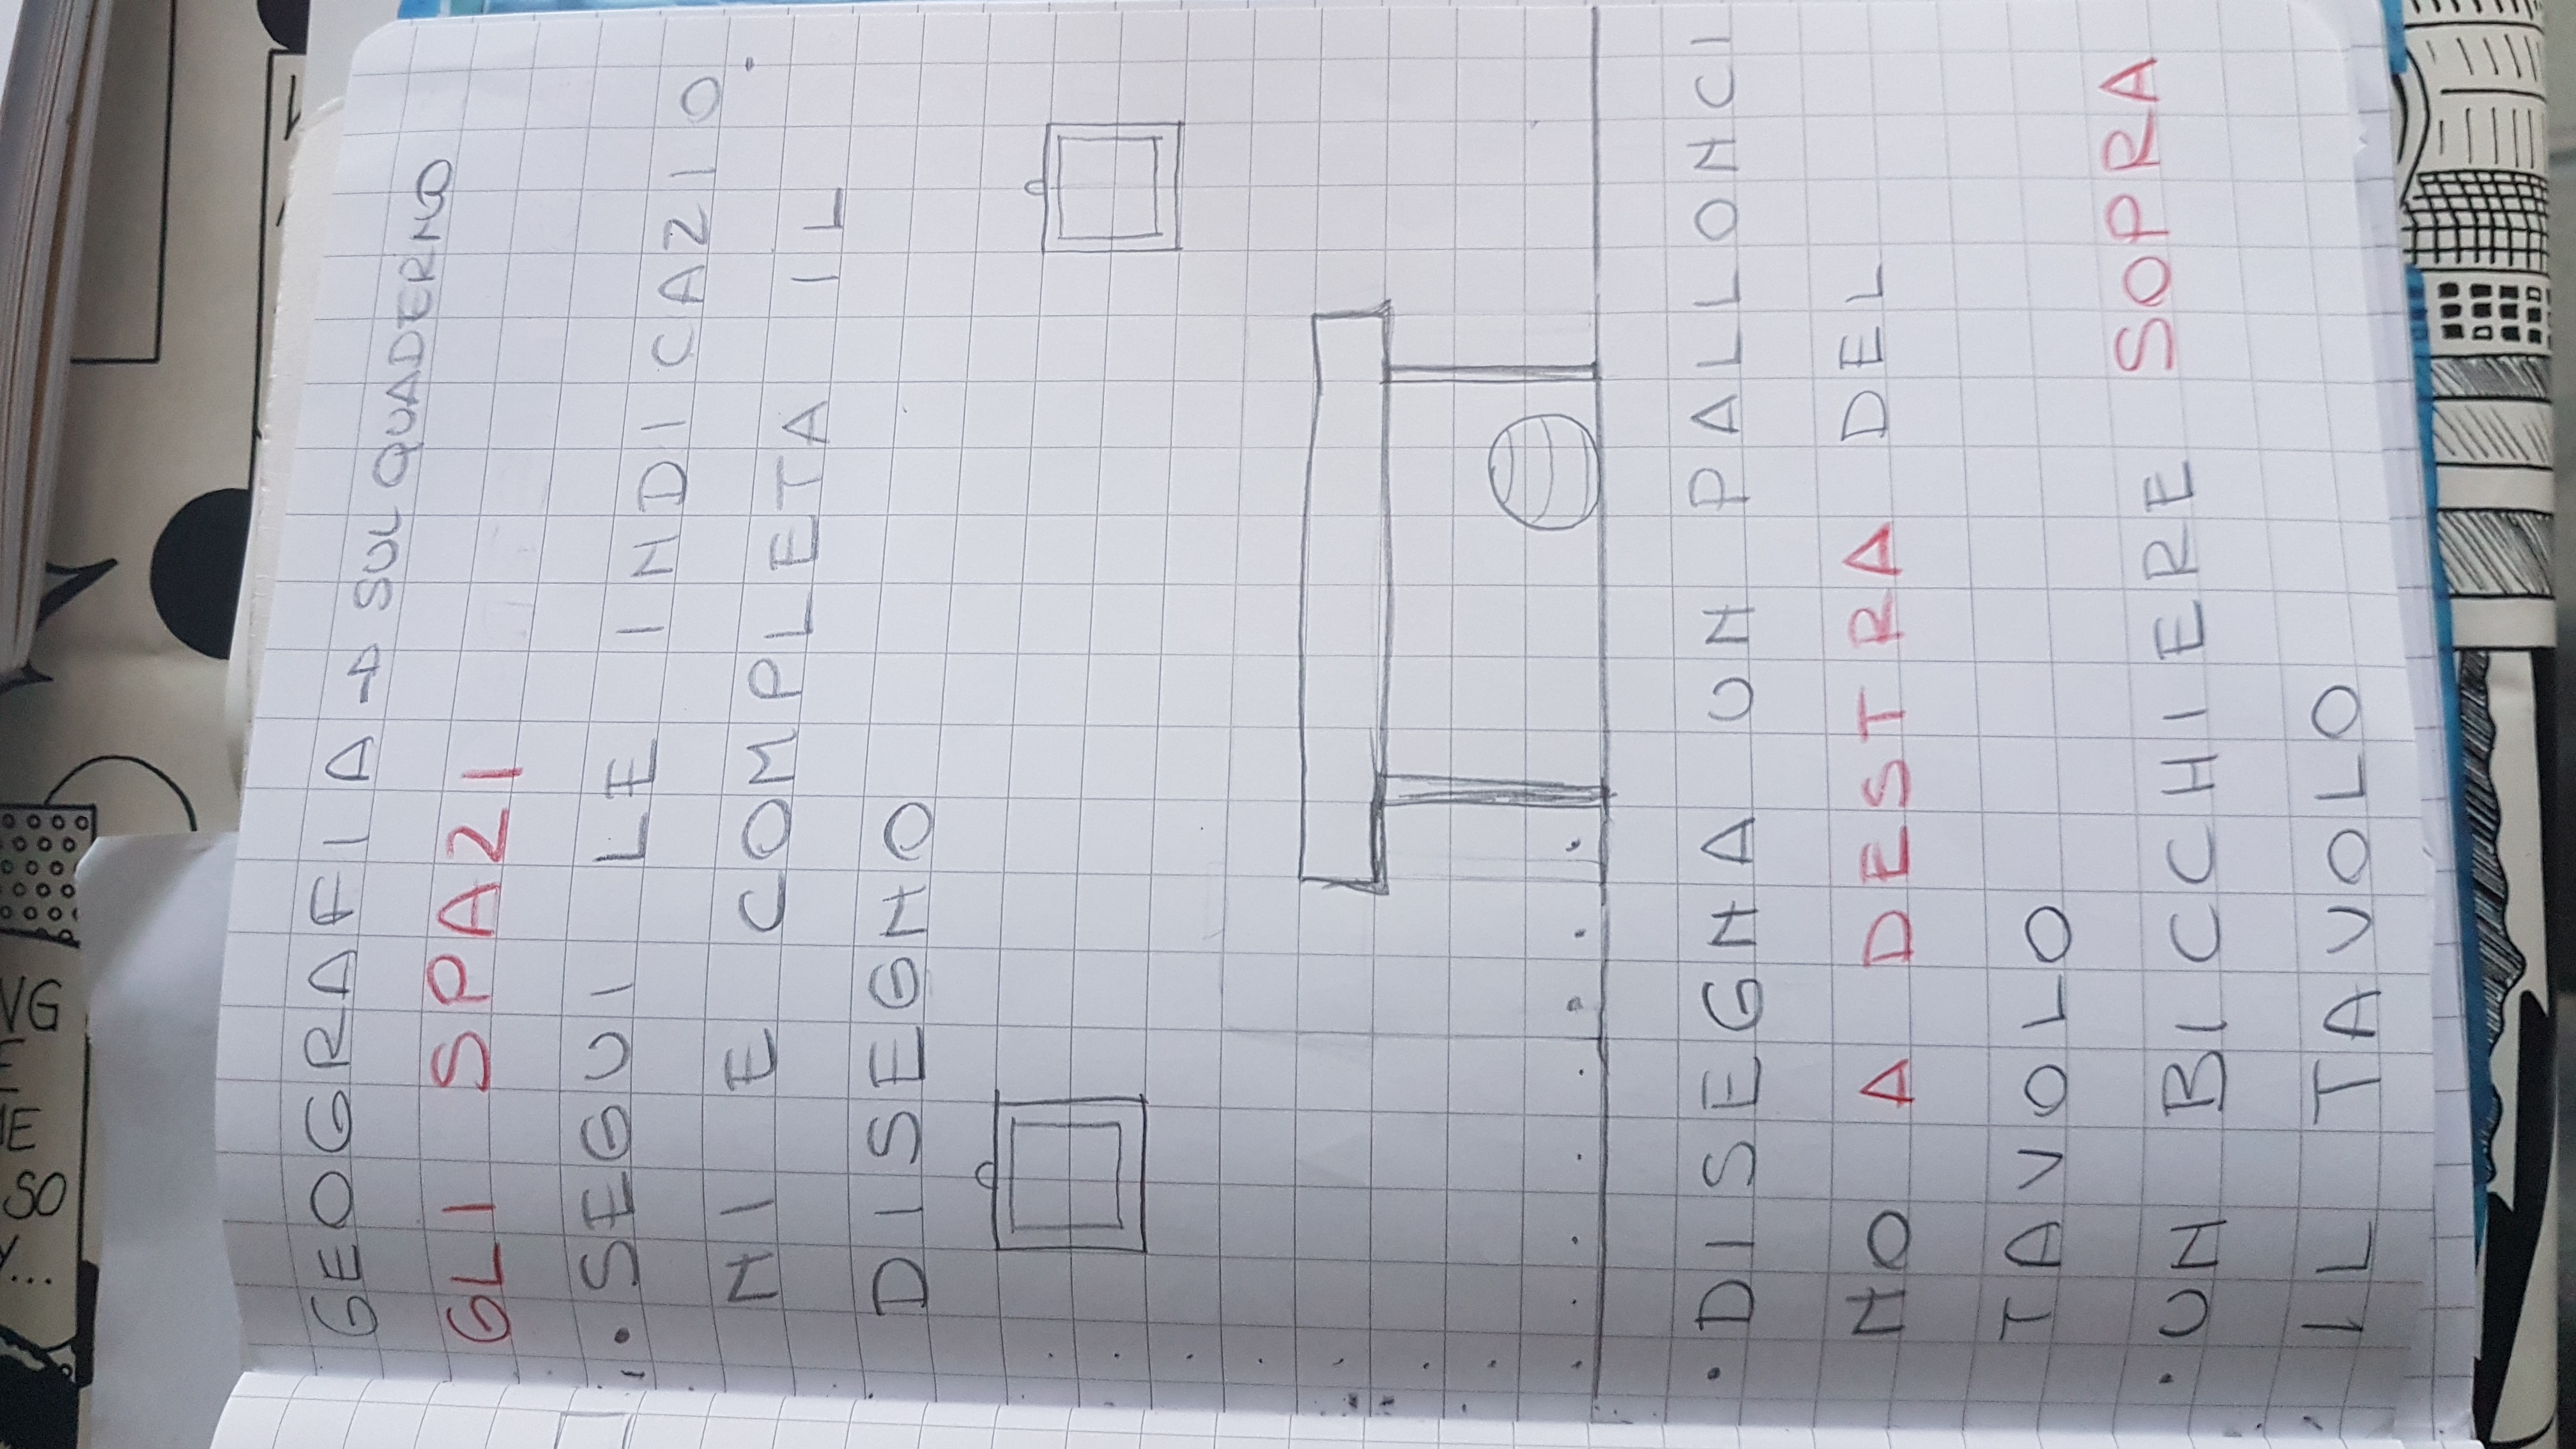 VG
E
IE
SO
Y...
GEOGRAFIA → SUL QUADERNO
GLI SPAZI
• SEGUI LE INDICAZIO
NI E COMPLETA IL
DISEGNO
• DISEGNA UN PALLONCI
NO A DESTRA DEL
TAVOLO
• UN BICCHIERE SOPRA
IL TAVOLO